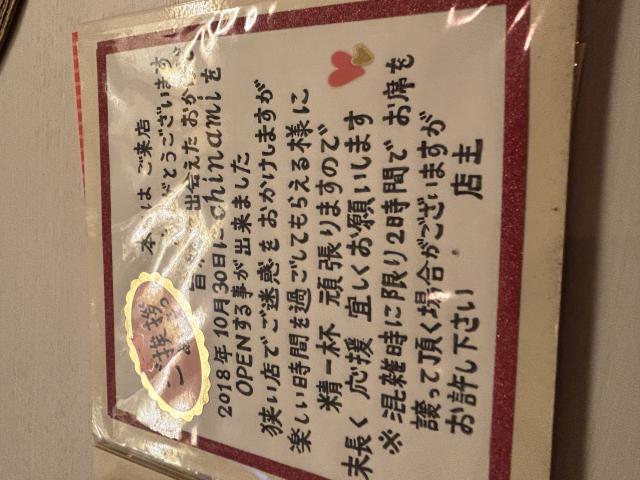 ご挨拶
本 は ご来店
とうございます
出会えた おか
2018年10月30日にchinamiを
OPENする事が出来ました
狭い店でご迷惑をおかけしますが
楽しい時間を過ごしてもらえる様に
精一杯 頑張りますので
末長く 応援 宜しくお願いします
※混雑時に限り2時間で お席を
譲って頂く場合がございますが
お許し下さい 店主